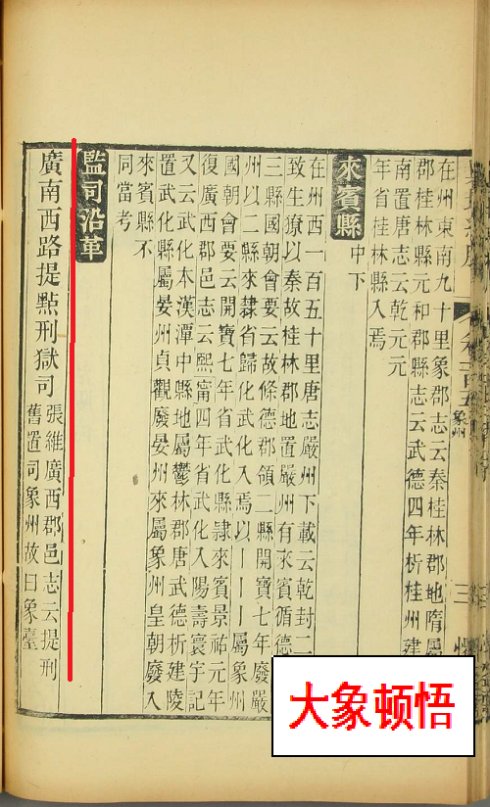 卷一百五
象州
三
在州東南九十里象郡志云秦桂林郡地隋屬
郡桂林縣元和郡縣志云武德四年析桂州建
南置唐志云乾元元
年省桂林縣入焉
來賓縣 中下
在州西一百五十里唐志嚴州下載云乾封二
致生獠以秦故桂林郡地置嚴州有來賓循德
三縣國朝會要云故條德郡領二縣開寶七年廢嚴
州以二縣來隸省歸化武化入焉以丨丨丨屬象州
國朝會要云開寶七年省武化縣隸來賓景祐元年
復廣西郡邑志云熙甯四年省武化入陽壽寰宇記
又云武化本漢潭中縣地屬鬱林郡唐武德析建陵
置武化縣屬晏州貞觀廢晏州來屬象州皇朝廢入
來賓縣不
同當考
監司沿革
廣南西路提點刑獄司 張維廣西郡邑志云提刑
舊置司象州故曰象臺
大象顿悟